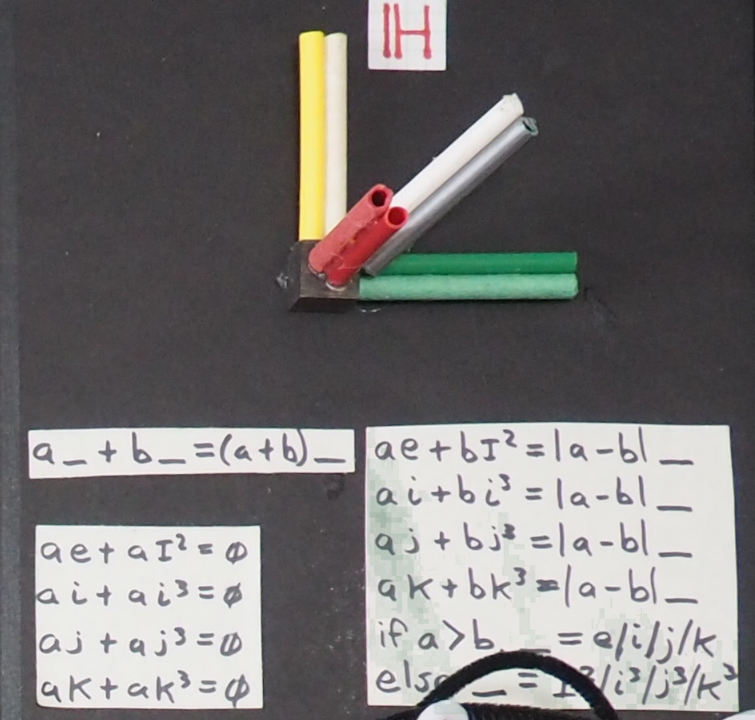 IH
a_ + b_ = (a+b)_
ae + aI² = φ
ai + ai³ = φ
aj + aj³ = φ
ak + ak³ = φ
ae + bI² = |a-b| _
ai + bi³ = |a-b| _
aj + bj³ = |a-b| _
ak + bk³ = |a-b| _
if a>b _ = e/i/j/k
else _ = I²/i³/j³/k³